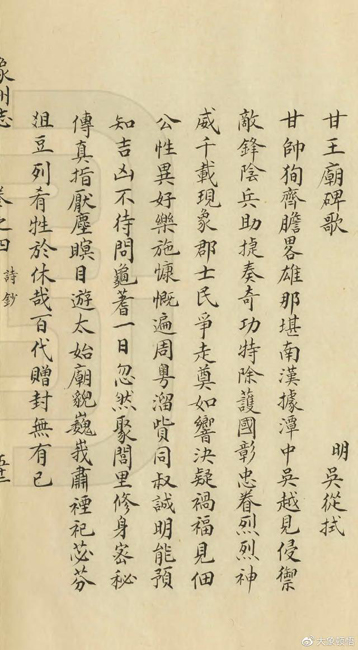 甘王廟碑歌 明 吳從拭
甘帥狥齊膽畧雄那堪南漢據潭中吳越見侵禦
敵鋒陰兵助捷奏奇功特除護國彰忠眷烈烈神
威千載現象郡士民爭走奠如響決疑禍福見佃
公性異好樂施慷慨遍周粤溜貲同叔誠明能預
知吉凶不待問龜蓍一日忽然聚閭里修身密秘
傳真指厭塵瞑目遊太始廟貌巍峩肅禋祀苾芬
俎豆列肴牲於休哉百代贈封無有已
象州志 卷之四 詩鈔